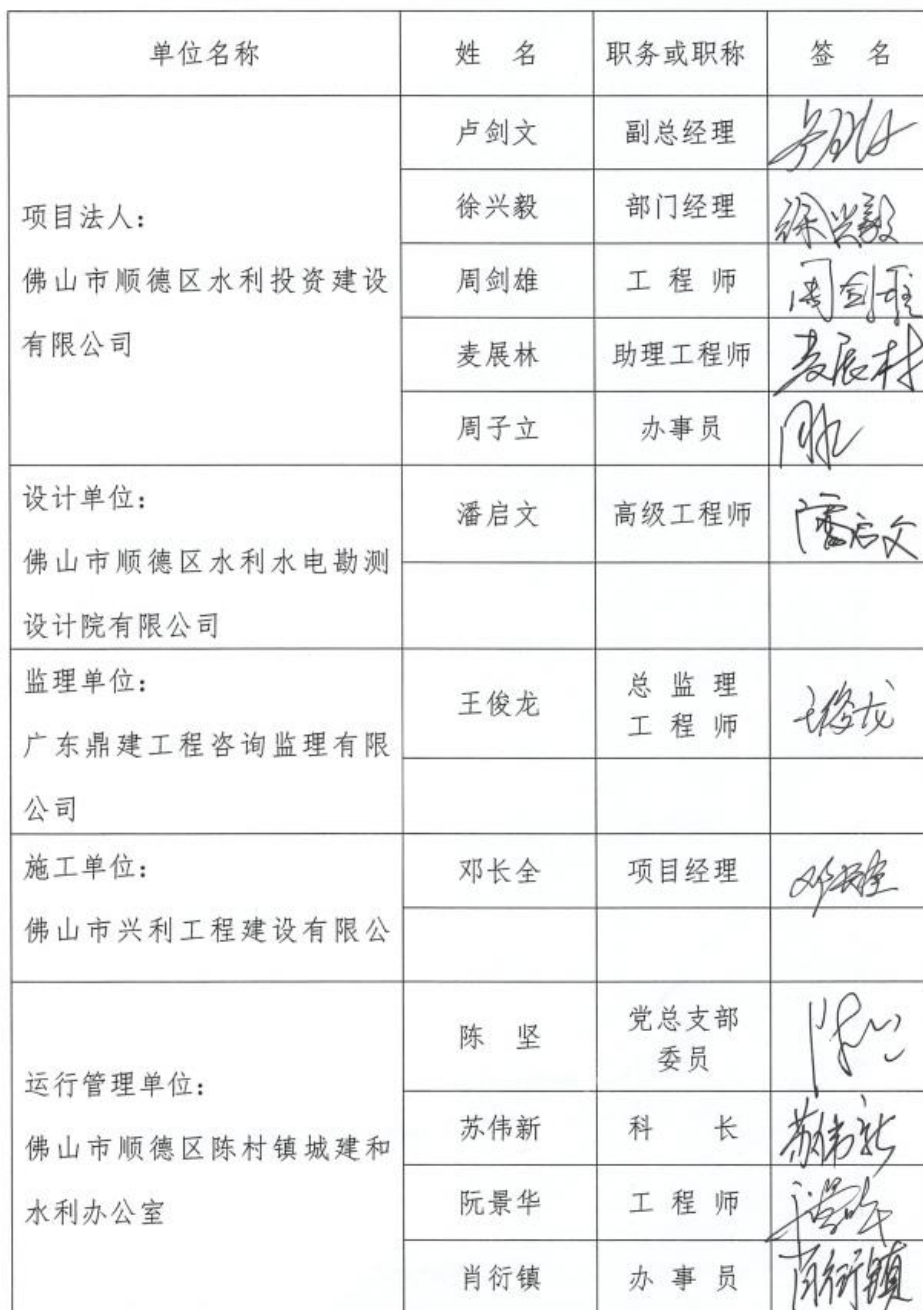 单位名称 姓 名 职务或职称 签 名
项目法人：
佛山市顺德区水利投资建设
有限公司
卢剑文 副总经理
徐兴毅 部门经理 徐兴毅
周剑雄 工 程 师 周剑雄
麦展林 助理工程师 麦展林
周子立 办事员
设计单位：
佛山市顺德区水利水电勘测
设计院有限公司
潘启文 高级工程师 潘启文
监理单位：
广东鼎建工程咨询监理有限
公司
王俊龙 总 监 理
工 程 师 王俊龙
施工单位：
佛山市兴利工程建设有限公
邓长全 项目经理 邓长全
运行管理单位：
佛山市顺德区陈村镇城建和
水利办公室
陈 坚 党总支部
委员
苏伟新 科 长 苏伟新
阮景华 工 程 师
肖衍镇 办 事 员 肖衍镇